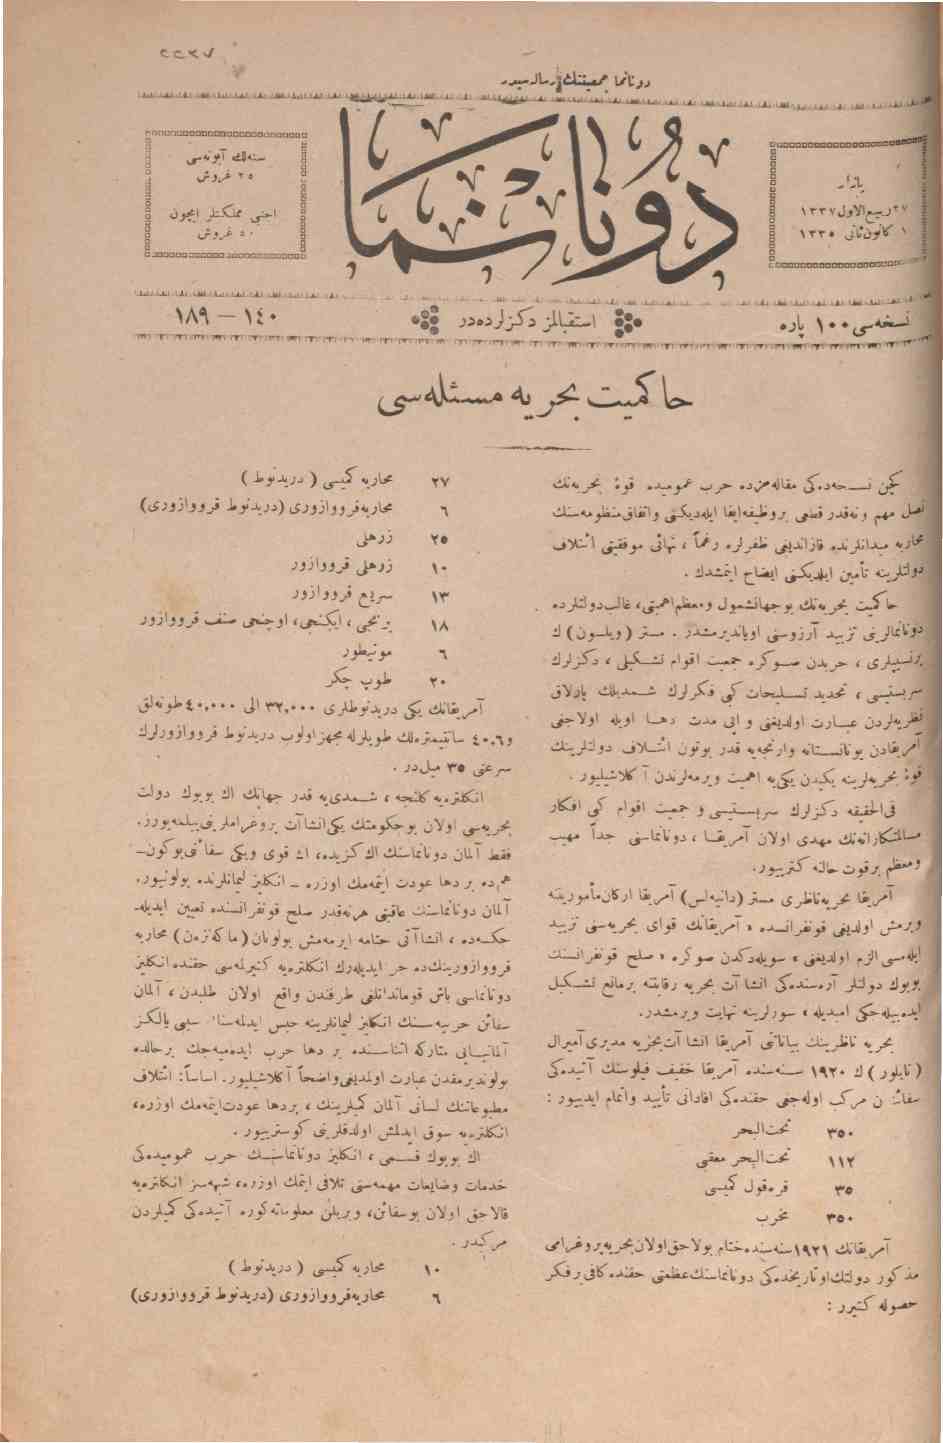 دونانما جمعیتنك رساله‌سیدر
بازار
٢٧ ربیع‌الاول ١٣٣٧
١ كانون‌ثانی ١٣٣٥
دوناسما
سنه‌لك آبونه‌سی
٢٥ غروش
اجنبی مملكتلر ایچون
٥٠ غروش
نسخه‌سی ١٠٠ پاره
استقبالمز دكزلرده‌در
١٤٠ — ١٨٩
حاكمیت بحریه مسئله‌سی
كچن نسخه‌ده‌كی مقاله‌مزده حرب عمومیده قوهٔ بحریه‌نك
نصل مهم ونه‌قدر قطعی بروظیفه‌ایفا ایله‌دیكنی واتفاق‌منظومه‌سنك
محاربه میدانلرنده قازاندیغی ظفرلره رغماً ، نهائی موفقیتی ائتلاف
دولتلرینه تأمین ایلدیكنی ایضاح ایتمشدك .
حاكمیت بحریه‌نك بوجهانشمول ومعظم‌اهمیتی، غالب‌دولتلرده
دونانمالرینی تزیید آرزوسنی اویاندیرمشدر . مستر (ویلسون) ك
پرنسیپلری ، حربدن صوكره جمعیت اقوام تشكیلی ، دكزلرك
سربستیسی ، تحدید تسلیحات كبی فكرلرك شمدیلك پارلاق
نظریه‌لردن عبارت اولدیغنی و ایی مدت دها اویله اولاجغی
آمریقادن یونانستانه وارنجه‌یه قدر بوتون ائتلاف دولتلرینك
قوهٔ بحریه‌لرینه یكیدن یكی‌یه اهمیت ویرمه‌لرندن آكلاشیلیور .
فی‌الحقیقه دكزلرك سربستیسی و جمعیت اقوام كبی افكار
مسالمتكارانه‌نك مهدی اولان آمریقا ، دونانماسنی جداً مهیب
ومعظم برقوت حالنه كتیرییور.
آمریقا بحریه‌ناظری مستر (دانیه‌لس) آمریقا اركان‌مأمورینه
ویرمش اولدیغی قونفرانسده « آمریقانك قوای بحریه‌سنی تزیید
ایله‌مسی الزم اولدیغنی » سویله‌دكدن صوكره « صلح قونفرانسنك
بویوك دولتلر آره‌سنده‌كی انشاآت بحریه رقابتنه برمانع تشكیل
ایده‌بیله‌جكی امیدیله ، سوزلرینه نهایت ویرمشدر.
بحریه ناظرینك بیاناتنی آمریقا انشاآت‌بحریه مدیری آمیرال
(تایلور) ك ١٩٢٠ سنه‌سنده آمریقا خفیف فیلوسنك آتیده‌كی
سفائندن مركب اوله‌جغی حقنده‌كی افاداتی تأیید واتمام ایدییور :
٣٥٠ تحت‌البحر
١١٢ تحت‌البحر معقبی
٣٥ قره‌قول كمیسی
٣٥٠ مخرب
آمریقانك ١٩٢١سنه‌سنده‌ختام بولاجق‌اولان‌بحریه‌پروغرامی
مذكور دولتك‌اوتاریخده‌كی دونانماسنك‌عظمتی حقنده كافی برفكر
حصوله كتیرر :
٢٧ محاربه كمیسی ( دریدنوط )
٦ محاربه‌قرووازوری (دریدنوط قرووازوری)
٢٥ زرهلی
١٠ زرهلی قرووازور
١٣ سریع قرووازور
١٨ برنجی ، ایكنجی، اوچنجی صنف قرووازور
٦ مونیطور
٢٠ طوپ چكر
آمریقانك یكی دریدنوطلری ٣٢,٠٠٠ الی ٤٠,٠٠٠طونه‌لق
و٤٠,٦ سانتیمتره‌لك طوپلرله مجهز اولوب دریدنوط قرووازورلرك
سرعتی ٣٥ میل‌در .
انكلتره‌یه كلنجه ، شمدی‌یه قدر جهانك اك بویوك دولت
بحریه‌سی اولان بوحكومتك یكی‌انشاآت پروغراملرینی‌بیلمه‌یورز.
فقط آلمان دونانماسنك اك كزیده، اك قوی ویكی سفائنی‌بوكون-
همده بردها عودت ایتمه‌مك اوزره - انكلیز لیمانلرنده بولونیور.
آلمان دونانماسنك عاقبتی هرنه‌قدر صلح قونفرانسنده تعیین ایدیله-
جكسه‌ده ، انشاآتی ختامه ایرمه‌مش بولونان (ماكه‌نزه‌ن) محاربه
قرووازورینك‌ده جر ایدیله‌رك انكلتره‌یه كتیرلمه‌سی حقنده انكلیز
دونانماسی باش قوماندانلغی طرفندن واقع اولان طلبدن ، آلمان
سفائن حربیه‌سنك انكلیز لیمانلرینه حبس ایدلمه‌سنك سببی یالكز
آلمانیانی متاركه اثناسنده بردها حرب ایده‌میه‌جك برحالده
بولوندیرمقدن عبارت اولمدیغی‌واضحاً آكلاشیلیور. اساساً: ائتلاف
مطبوعاتنك لسانی آلمان كمیلرینك ، بردها عودت‌ایتمه‌مك اوزره،
انكلتره‌یه سوق ایدلمش اولدقلرینی كوسترییور .
اك بویوك قسمی ، انكلیز دونانماسنك حرب عمومیده‌كی
خدمات وضایعات مهمه‌سنی تلافی ایتمك اوزره، شبهه‌سز انكلتره‌یه
قالاجق اولان بوسفائن، ویریلن معلوماته‌كوره آتیده‌كی كمیلردن
مركبدر .
١٠ محاربه كمیسی ( دریدنوط )
٦ محاربه‌قرووازوری (دریدنوط قرووازوری)